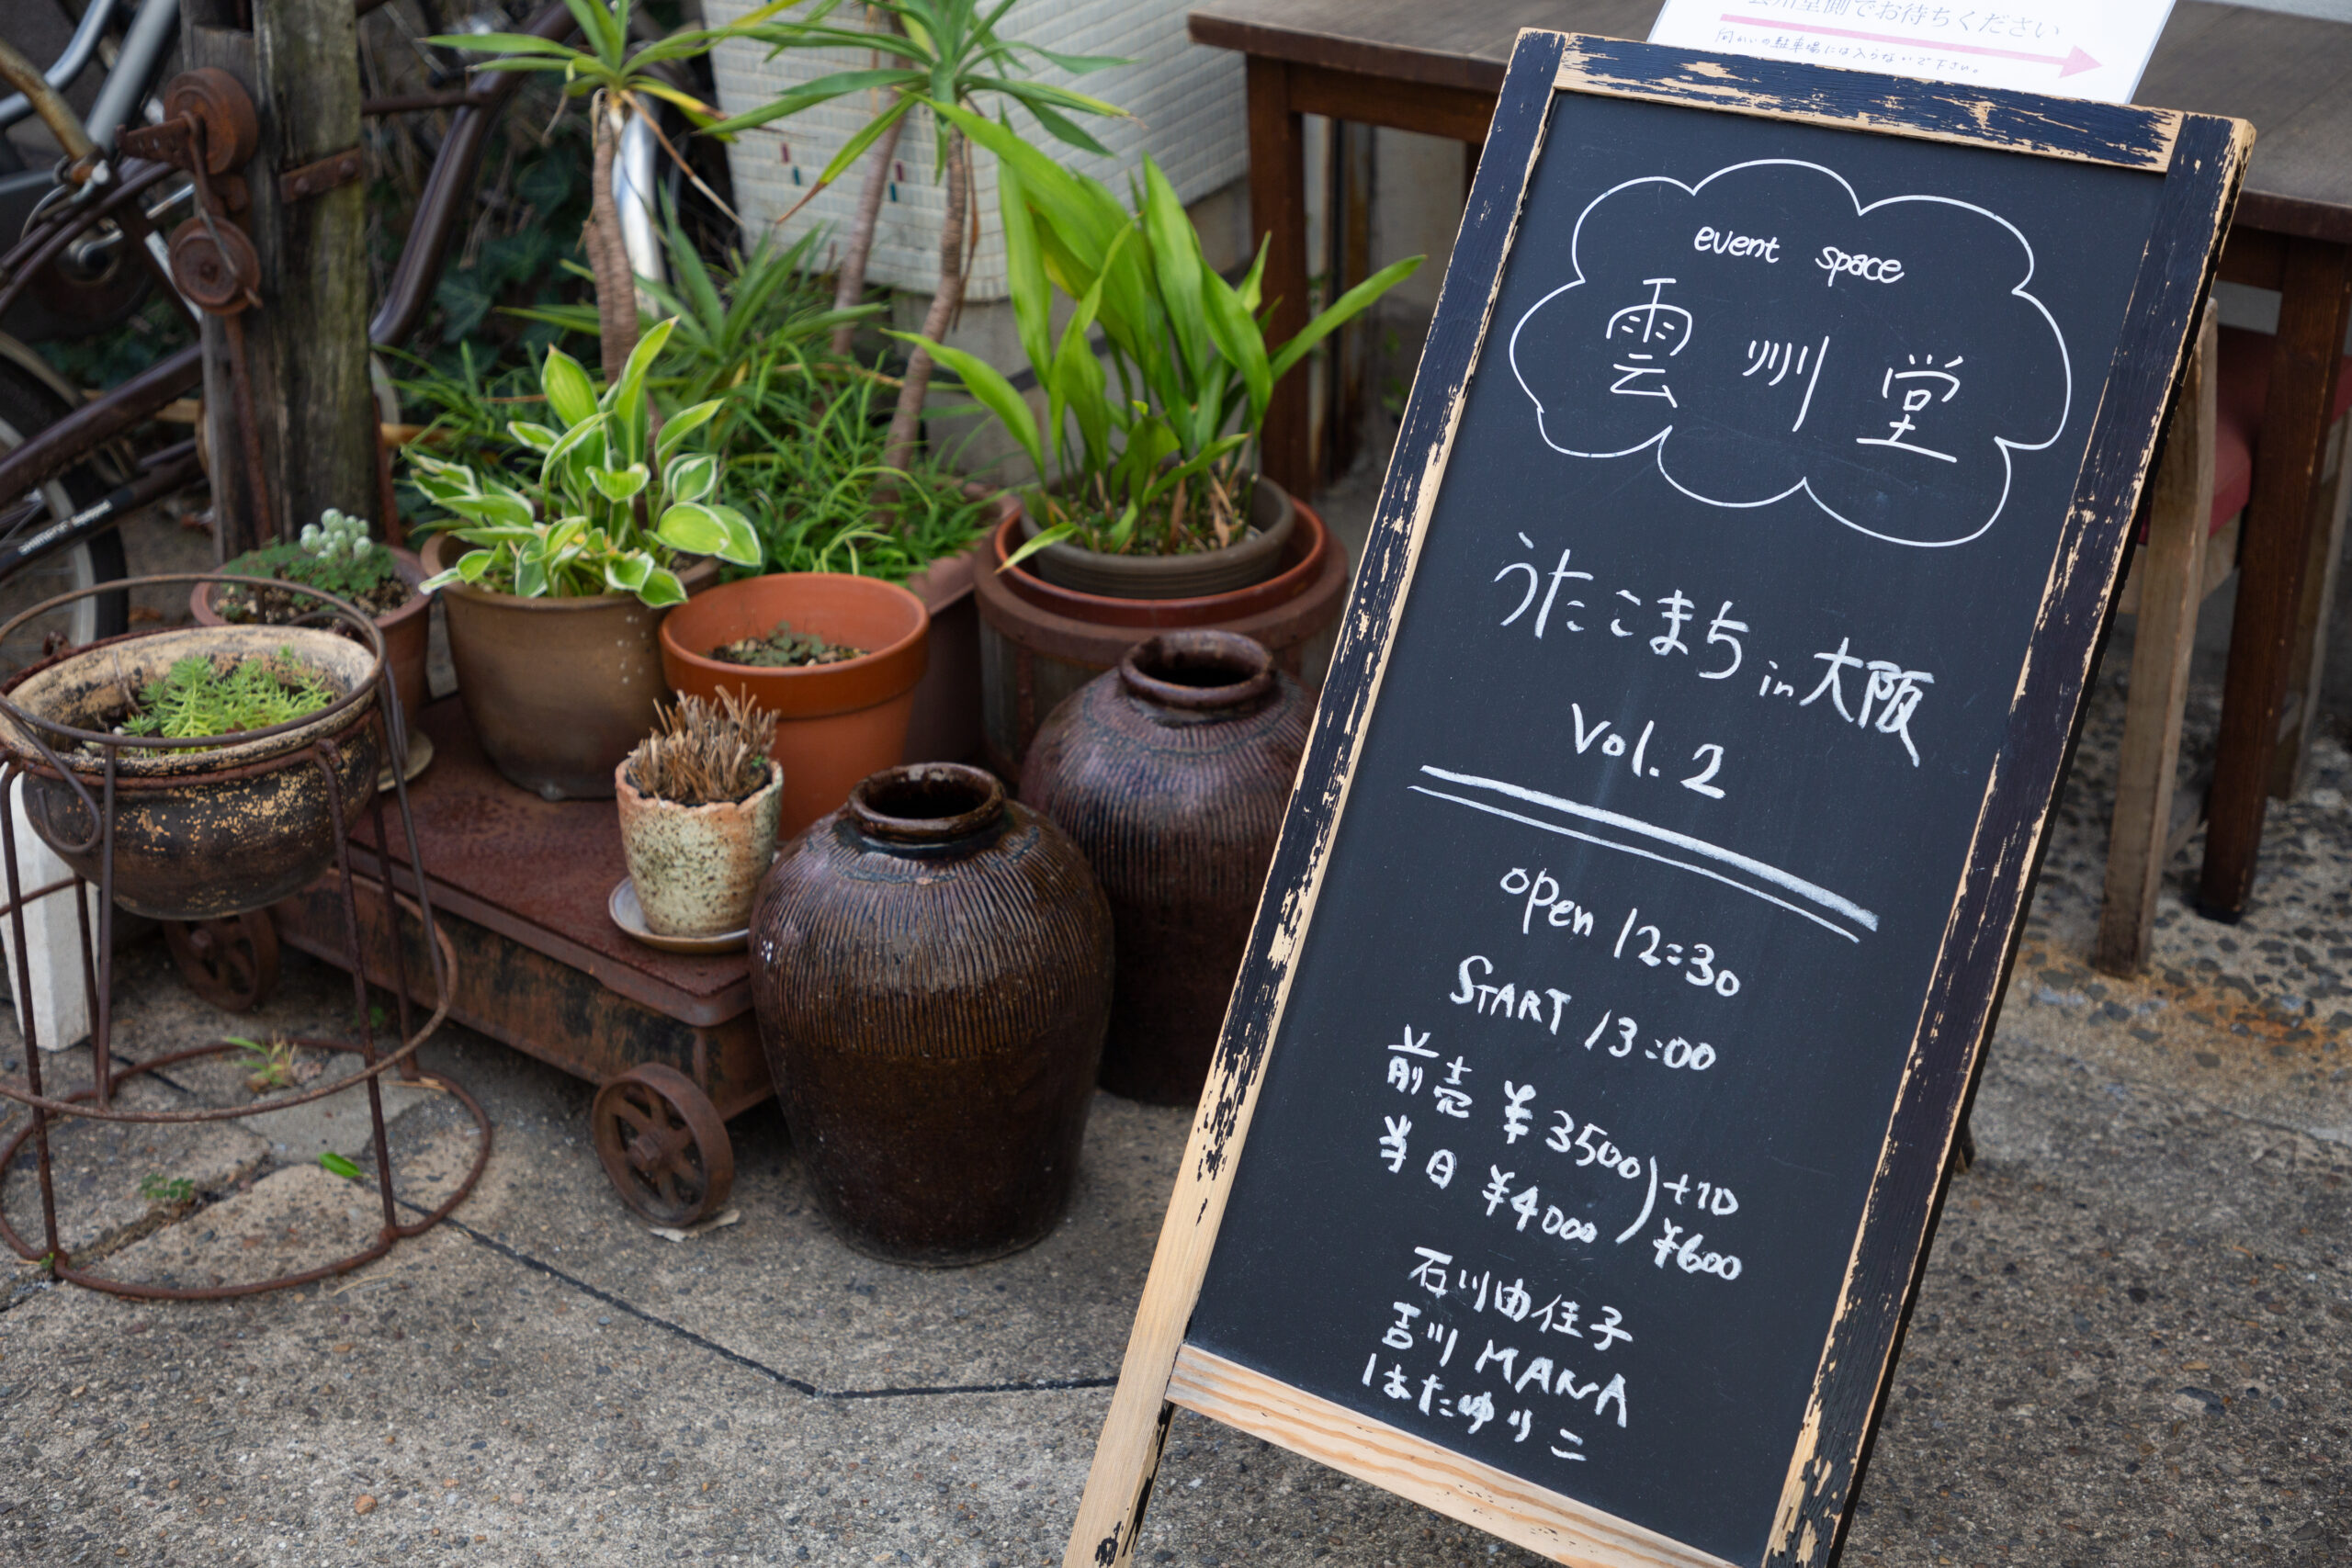 雲州堂側でお待ちください
向かいの駐車場には入らないで下さい。
event space
雲州堂
うたこまち in 大阪
Vol. 2
open 12:30
START 13:00
前売 ¥3500
当日 ¥4000
+1D
¥600
石川由佳子
吉川MANA
はたゆりこ